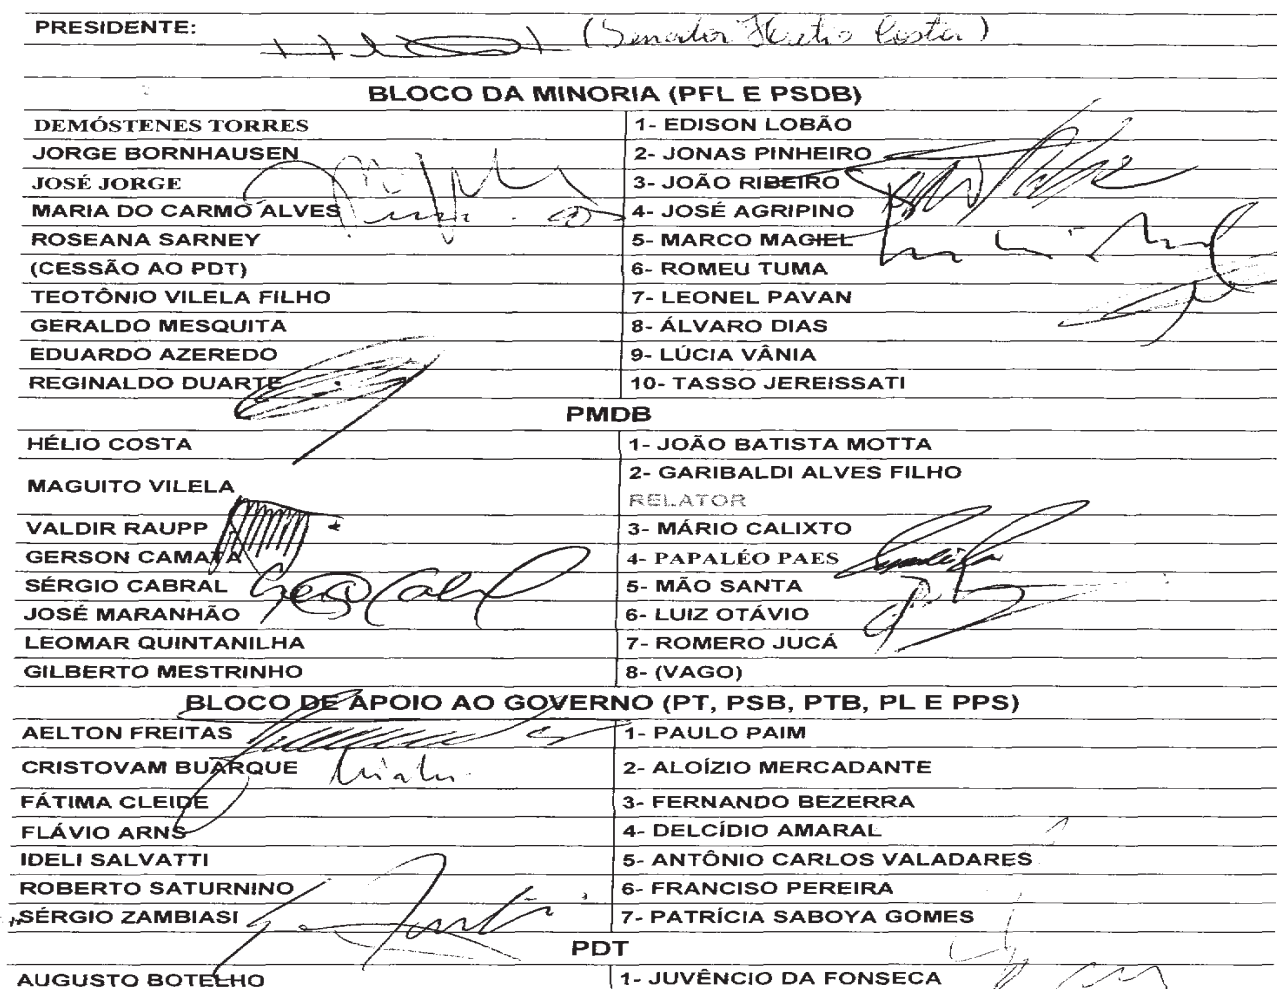 PRESIDENTE: (Senador Hélio Costa)
BLOCO DA MINORIA (PFL E PSDB)
DEMÓSTENES TORRES 1- EDISON LOBÃO
JORGE BORNHAUSEN 2- JONAS PINHEIRO
JOSÉ JORGE 3- JOÃO RIBEIRO
MARIA DO CARMO ALVES 4- JOSÉ AGRIPINO
ROSEANA SARNEY 5- MARCO MACIEL
(CESSÃO AO PDT) 6- ROMEU TUMA
TEOTÔNIO VILELA FILHO 7- LEONEL PAVAN
GERALDO MESQUITA 8- ÁLVARO DIAS
EDUARDO AZEREDO 9- LÚCIA VÂNIA
REGINALDO DUARTE 10- TASSO JEREISSATI
PMDB
HÉLIO COSTA 1- JOÃO BATISTA MOTTA
MAGUITO VILELA 2- GARIBALDI ALVES FILHO
RELATOR
VALDIR RAUPP 3- MÁRIO CALIXTO
GERSON CAMATA 4- PAPALÉO PAES
SÉRGIO CABRAL 5- MÃO SANTA
JOSÉ MARANHÃO 6- LUIZ OTÁVIO
LEOMAR QUINTANILHA 7- ROMERO JUCÁ
GILBERTO MESTRINHO 8- (VAGO)
BLOCO DE APOIO AO GOVERNO (PT, PSB, PTB, PL E PPS)
AELTON FREITAS 1- PAULO PAIM
CRISTOVAM BUARQUE 2- ALOÍZIO MERCADANTE
FÁTIMA CLEIDE 3- FERNANDO BEZERRA
FLÁVIO ARNS 4- DELCÍDIO AMARAL
IDELI SALVATTI 5- ANTÔNIO CARLOS VALADARES
ROBERTO SATURNINO 6- FRANCISO PEREIRA
SÉRGIO ZAMBIASI 7- PATRÍCIA SABOYA GOMES
PDT
AUGUSTO BOTELHO 1- JUVÊNCIO DA FONSECA